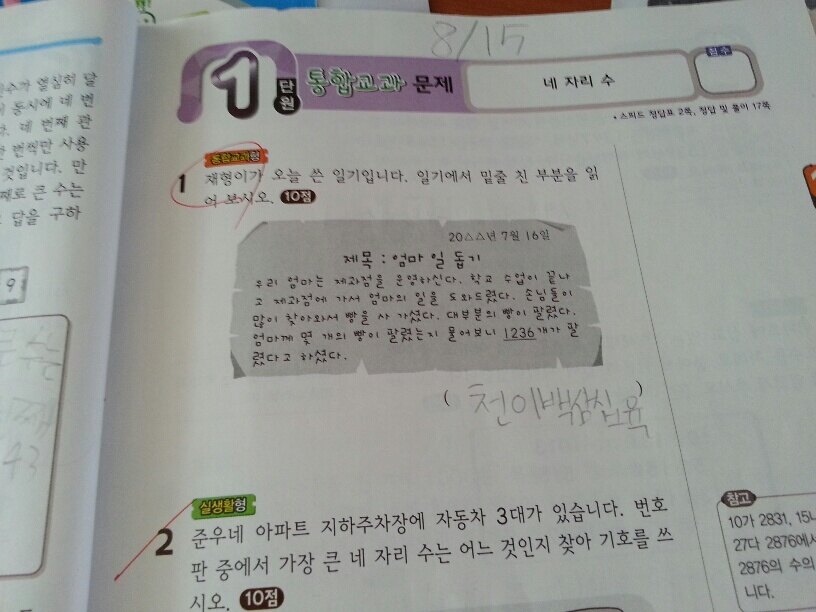 8/15
1단원 통합교과 문제 네 자리 수 점수
• 스피드 정답표 2쪽, 정답 및 풀이 17쪽
통합교과형
1 재형이가 오늘 쓴 일기입니다. 일기에서 밑줄 친 부분을 읽
어 보시오. 10점
20△△년 7월 16일
제목 : 엄마 일 돕기
우리 엄마는 제과점을 운영하신다. 학교 수업이 끝나
고 제과점에 가서 엄마의 일을 도와드렸다. 손님들이
많이 찾아와서 빵을 사 가셨다. 대부분의 빵이 팔렸다.
엄마께 몇 개의 빵이 팔렸는지 물어보니 1236개가 팔
렸다고 하셨다.
( 천이백삼십육 )
실생활형
2 준우네 아파트 지하주차장에 자동차 3대가 있습니다. 번호
판 중에서 가장 큰 네 자리 수는 어느 것인지 찾아 기호를 쓰
시오. 10점
참고
10가 2831, 15나
27다 2876에서
2876의 수의
니다.
수가 열심히 달
동시에 네 번
네 번째 판
번씩만 사용
것입니다. 만
째로 큰 수는
답을 구하
9
43